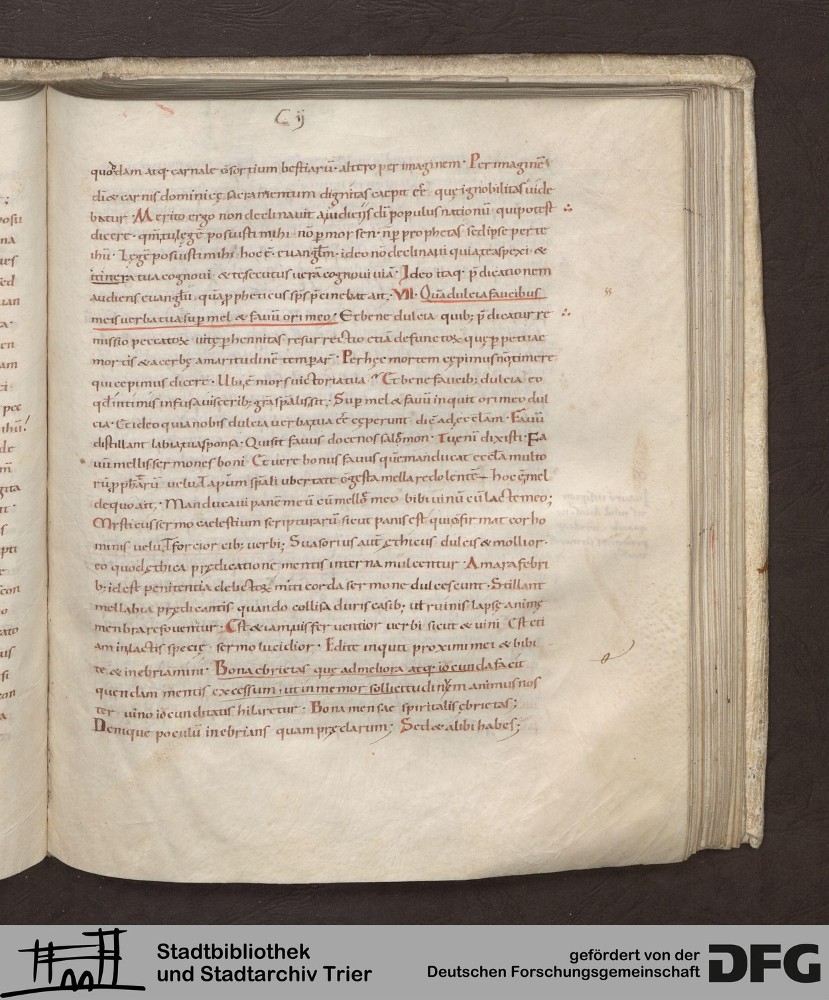 C ij
quodam atq; carnale ɔsortium bestiarū· altero per imaginem· Per imaginē
di & carnis dominicę sacramentum dignitas caepit eē· quę ignobilitas uide
batur· Merito ergo non declinauit a iudiciis di populus nationū qui potest
dicere· qm̄ tu legē posuisti mihi· nō p morsen· nō p prophetas sed ipse per te
ihū· Legē posuisti mihi· hoc ē euanglm̄· ideo nō declinaui quia te aspexi· &
itinera tua cognoui· & te secutus uerā cognoui uiā· Ideo itaq; p̄dicationem
audiens euanglii quā ppheticus sp̄s p̄cinebat ait· VII· Quā dulcia faucibus
meis uerba tua sup mel & fauū ori meo· Et bene dulcia quib; p̄dicatur re
missio peccatoꝝ· uitę phennitas resurrectio etiā defunctoꝝ quę ppetuae
mortis & acerbę amaritudinē temparet· Per hęc mortem cępimus nō timere
qui cępimus dicere· Ubi ē mors uictoria tua? Et bene faucib; dulcia eo
qd intimis infusa uiscerib; gra spalis sit· Sup mel & fauū inquit ori meo dul
cia· Et ideo quia nobis dulcia uerba tua eē cęperunt· dic ad ecclam· Fauū
distillant labia tua sponsa· Quis sit fauus docet nos salomon· Tuenī dixisti· Fa
uū mellis sermones boni· Et uere bonus fauus quem manducat eccla multo
rū ppharū uelut apum spali ubertate ɔgesta mella redolente· hoc ē mel
de quo ait· Manducaui panē meū cū mello meo· bibi uinū cū lacte meo;
Mysticus sermo caelestium scripturarū sicut panis est qui ɔfirmat cor ho
minis uelut forcior cib; uerbi; Suasorius aut ęthicus dulcis & mollior·
eo quod ęthica prędicatione mentis interna mulcentur· Amara febri
b; id est penitentia delictoꝝ miti corda sermone dulcescunt· Stillant
mel labia prędicantis quando collisa duris casib; ut ruinis lapsę animę
menbra refouentur· Est & iam uis feruentior uerbi sicut & uini· Est eti
am in lactis specię sermo lucidior· Edite inquit proximi mei & bibi
te & inebriamini· Bona ebrietas quę ad meliora atq; iocunda facit
quendam mentis excessum· ut inmemor sollicitudinem animus nos
ter uino iocunditatis hilaretur· Bona mensae spiritalis ebrietas;
Denique poculū inebrians quam pręclarum; Sed & alibi habes;
Stadtbibliothek
und Stadtarchiv Trier
gefördert von der
Deutschen Forschungsgemeinschaft
DFG